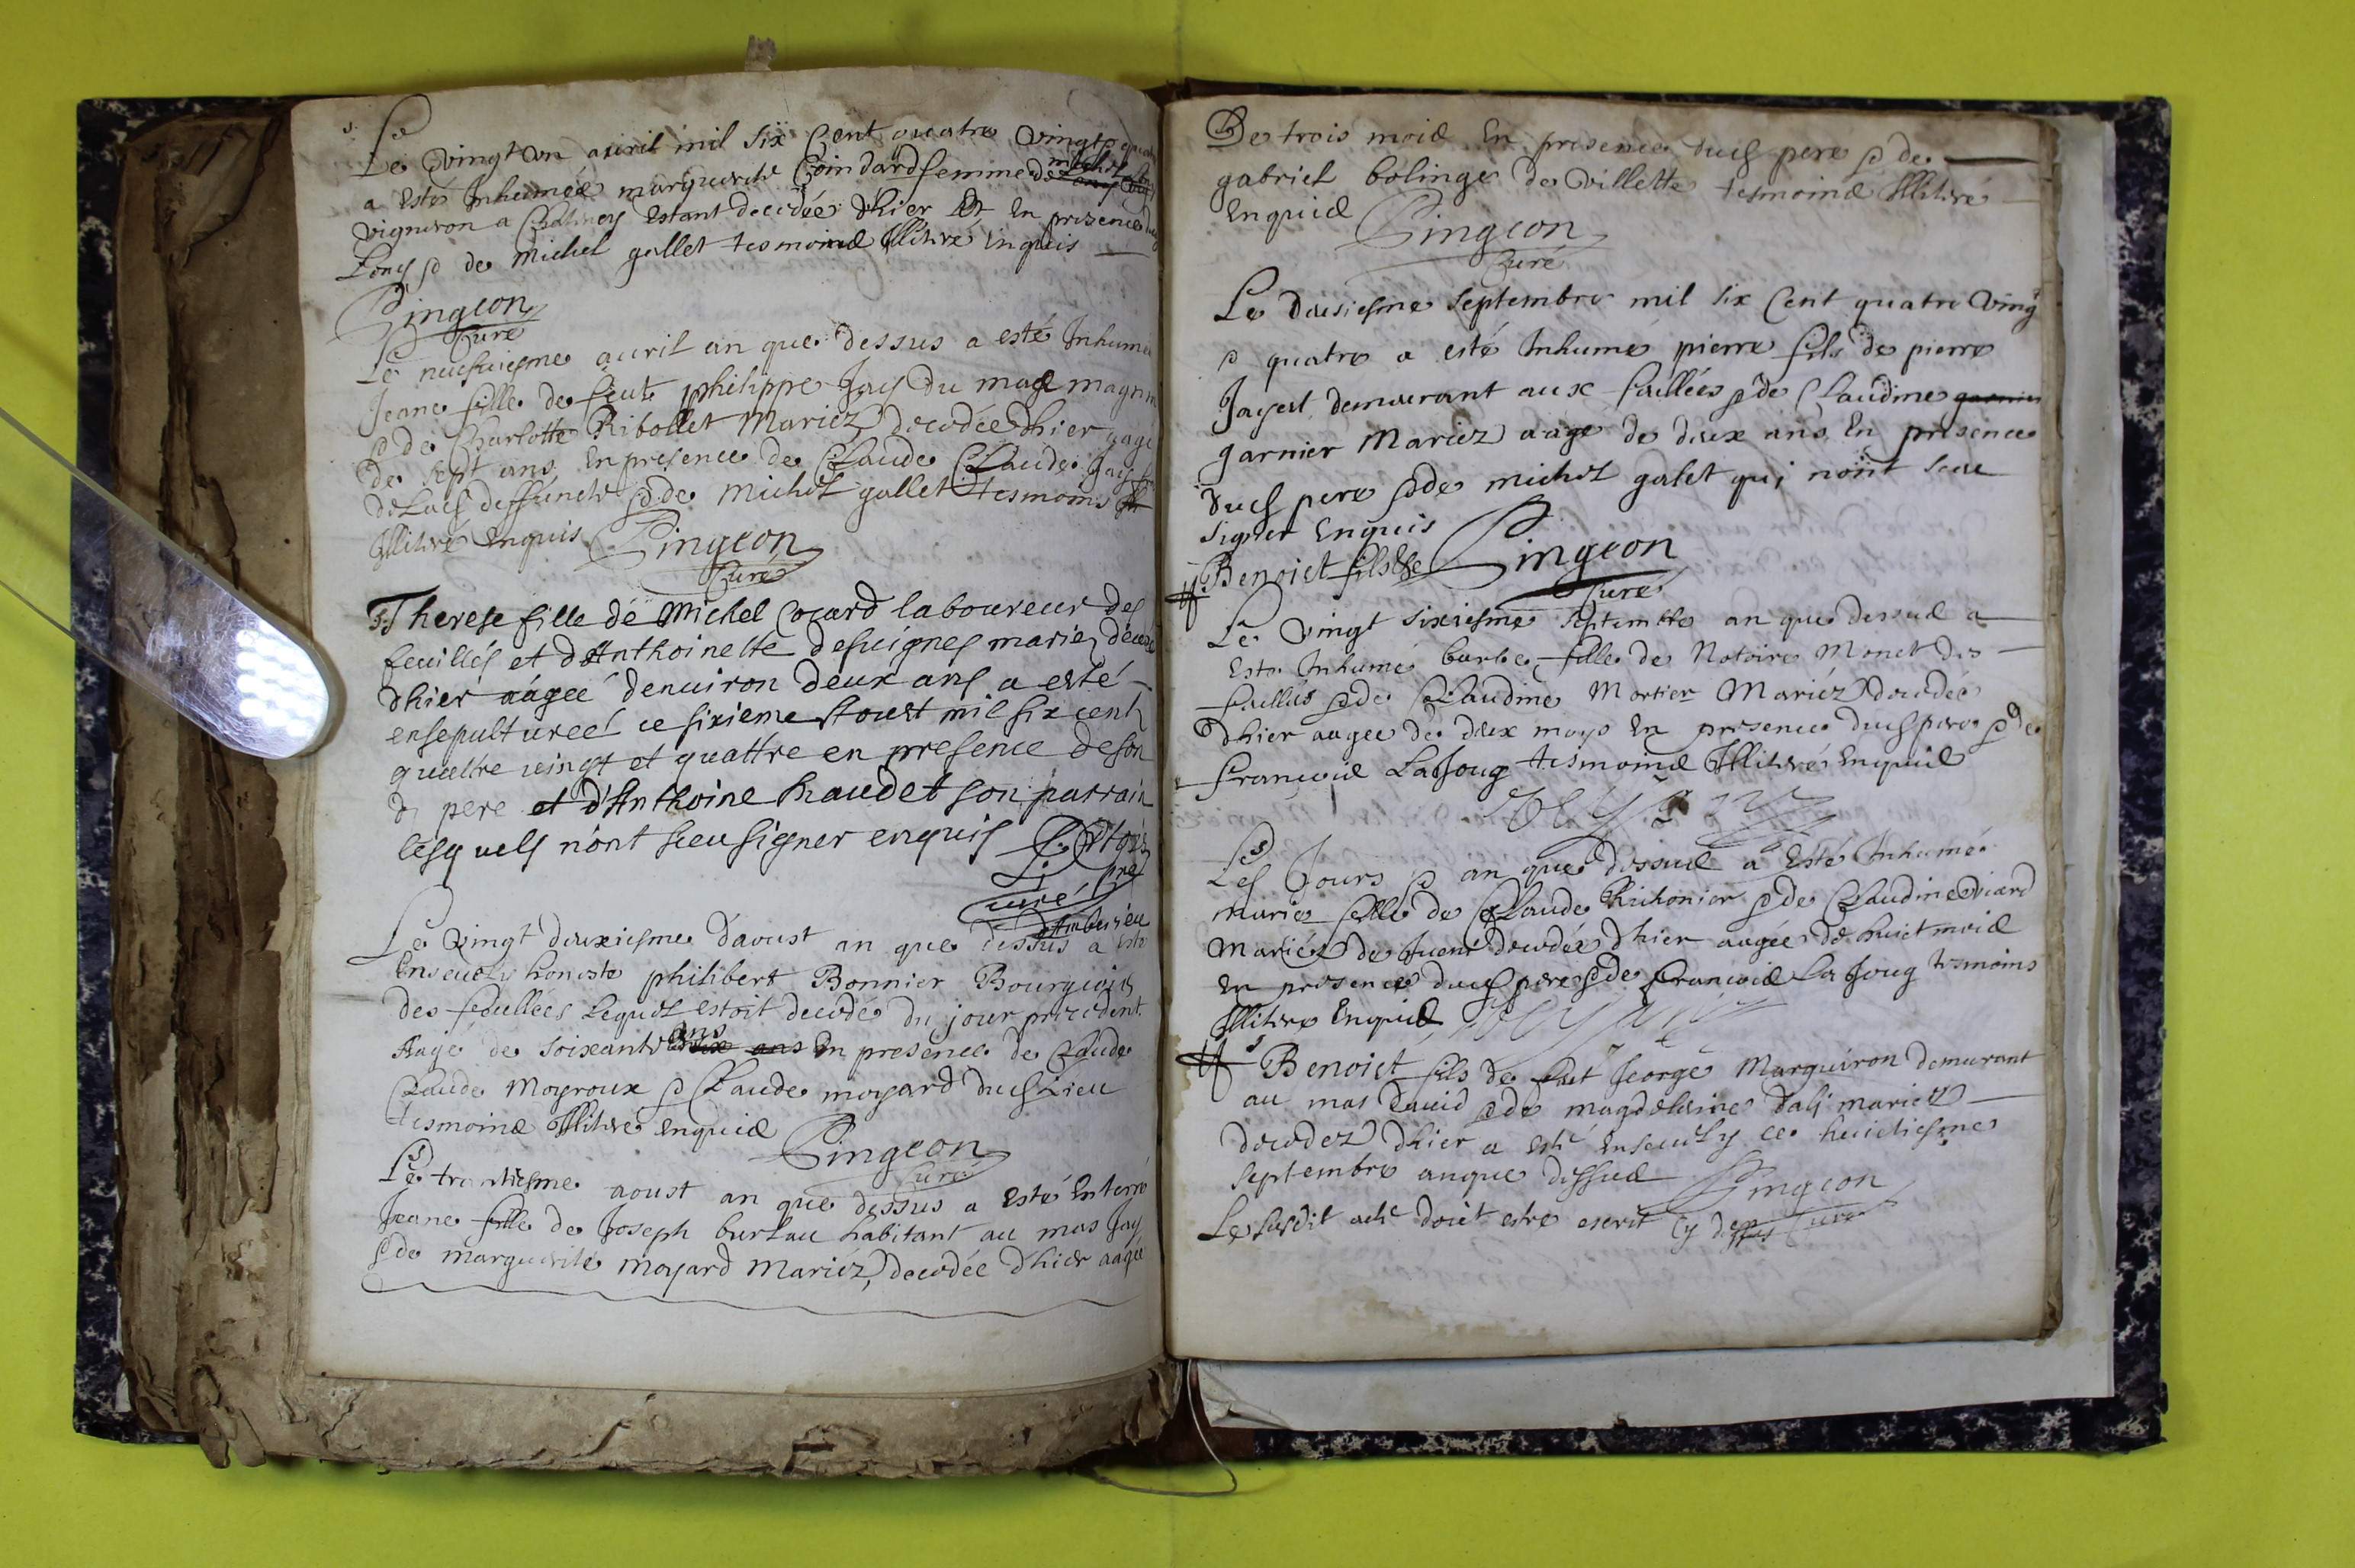 Le vingt un auril mil six Cent quatre vingts
a esté Inhumée marguerite Coindard femme de
vigneron a estant decedée d'hier Et En presence
Louys & de michel gallet tesmoins Illitere Enquis
Pingeon
Curé
Le neufuiesme auril an que dessus a esté Inhumé
Jeane fille de feut philippe Jay du mas magnin
& de Charlotte Ribollet Mariez decedée dhier aagé
de sept ans En presence de Claude Claude Jay
de Lads deffuncte & de michel gallet tesmoins
Illitere Enquis Pingeon
Curé
Therese fille de Michel Cocard laboureur des
feuilles et d'Anthoinette desuignes mariez
dhier aagée denuiron deux ans a esté
ensepulturee ce sixieme Aoust mil six cent
quattre vingt et quattre en presence de son
d pere et d'Anthoine haudet son parrain
lesquels n'ont sceu signer enquis
pre
curé
d'Amberieu
Le vingt deuxiesme d'aoust an que dessus a esté
Enseuely honeste philibert Bonnier Bourgeois
des feullées Lequel estoit decedé du jour precedent
Aagé de soixante ans En presence de Claude
Claude Moyroux & Claude moyard duds Lieu
tesmoins Illitere enquis
Pingeon
Curé
Le trentiesme aoust an que dessus a Esté Enterré
Jeane fille de Joseph burlau habitant au mas Jay
& de marguerite moyard Mariéz decedée d'hier aagée
De trois mois En presence duds pere & de
gabriel bolinge de Villette tesmoins Illitere
Enquis Pingeon
Curé
Le deusiesme septembre mil six Cent quatre Ving
& quatre a esté Inhumé pierre fils de pierre
Jayest demeurant aux faillées & de Claudine garnier
garnier Mariez aage de deux ans En presence
duds pere & de michel galet qui nont sceu
signer Enquis
Benoiet fils &c Pingeon
Curé
Le vingt sixiesme septembre an que dessus a
Este Inhumé barbe fille de Notoire Monet des
faullés & de Claudine Mortier Mariéz decedée
dhier aagee de deux moys En presence duds pere & de
Francois Lafoug tesmoins Illiteré Enquis
Les Jours & an que dessus a Esté Inhumé
marie fille de Claude & de Claudine viard
Mariéz decedée dhier aagée de huict mois
En presence duds pere & de Francois Lafoug tesmoins
Illitere Enquis
Benoiet fils de feut George Marguiron demurant
au mas Dauid & de magdelaine Daly mariez
decedez dhier a esté Enseuely ce huictiesme
septembre anque dessus Pingeon
Le susdit acte doiet estre escrit Cy dessus Curé